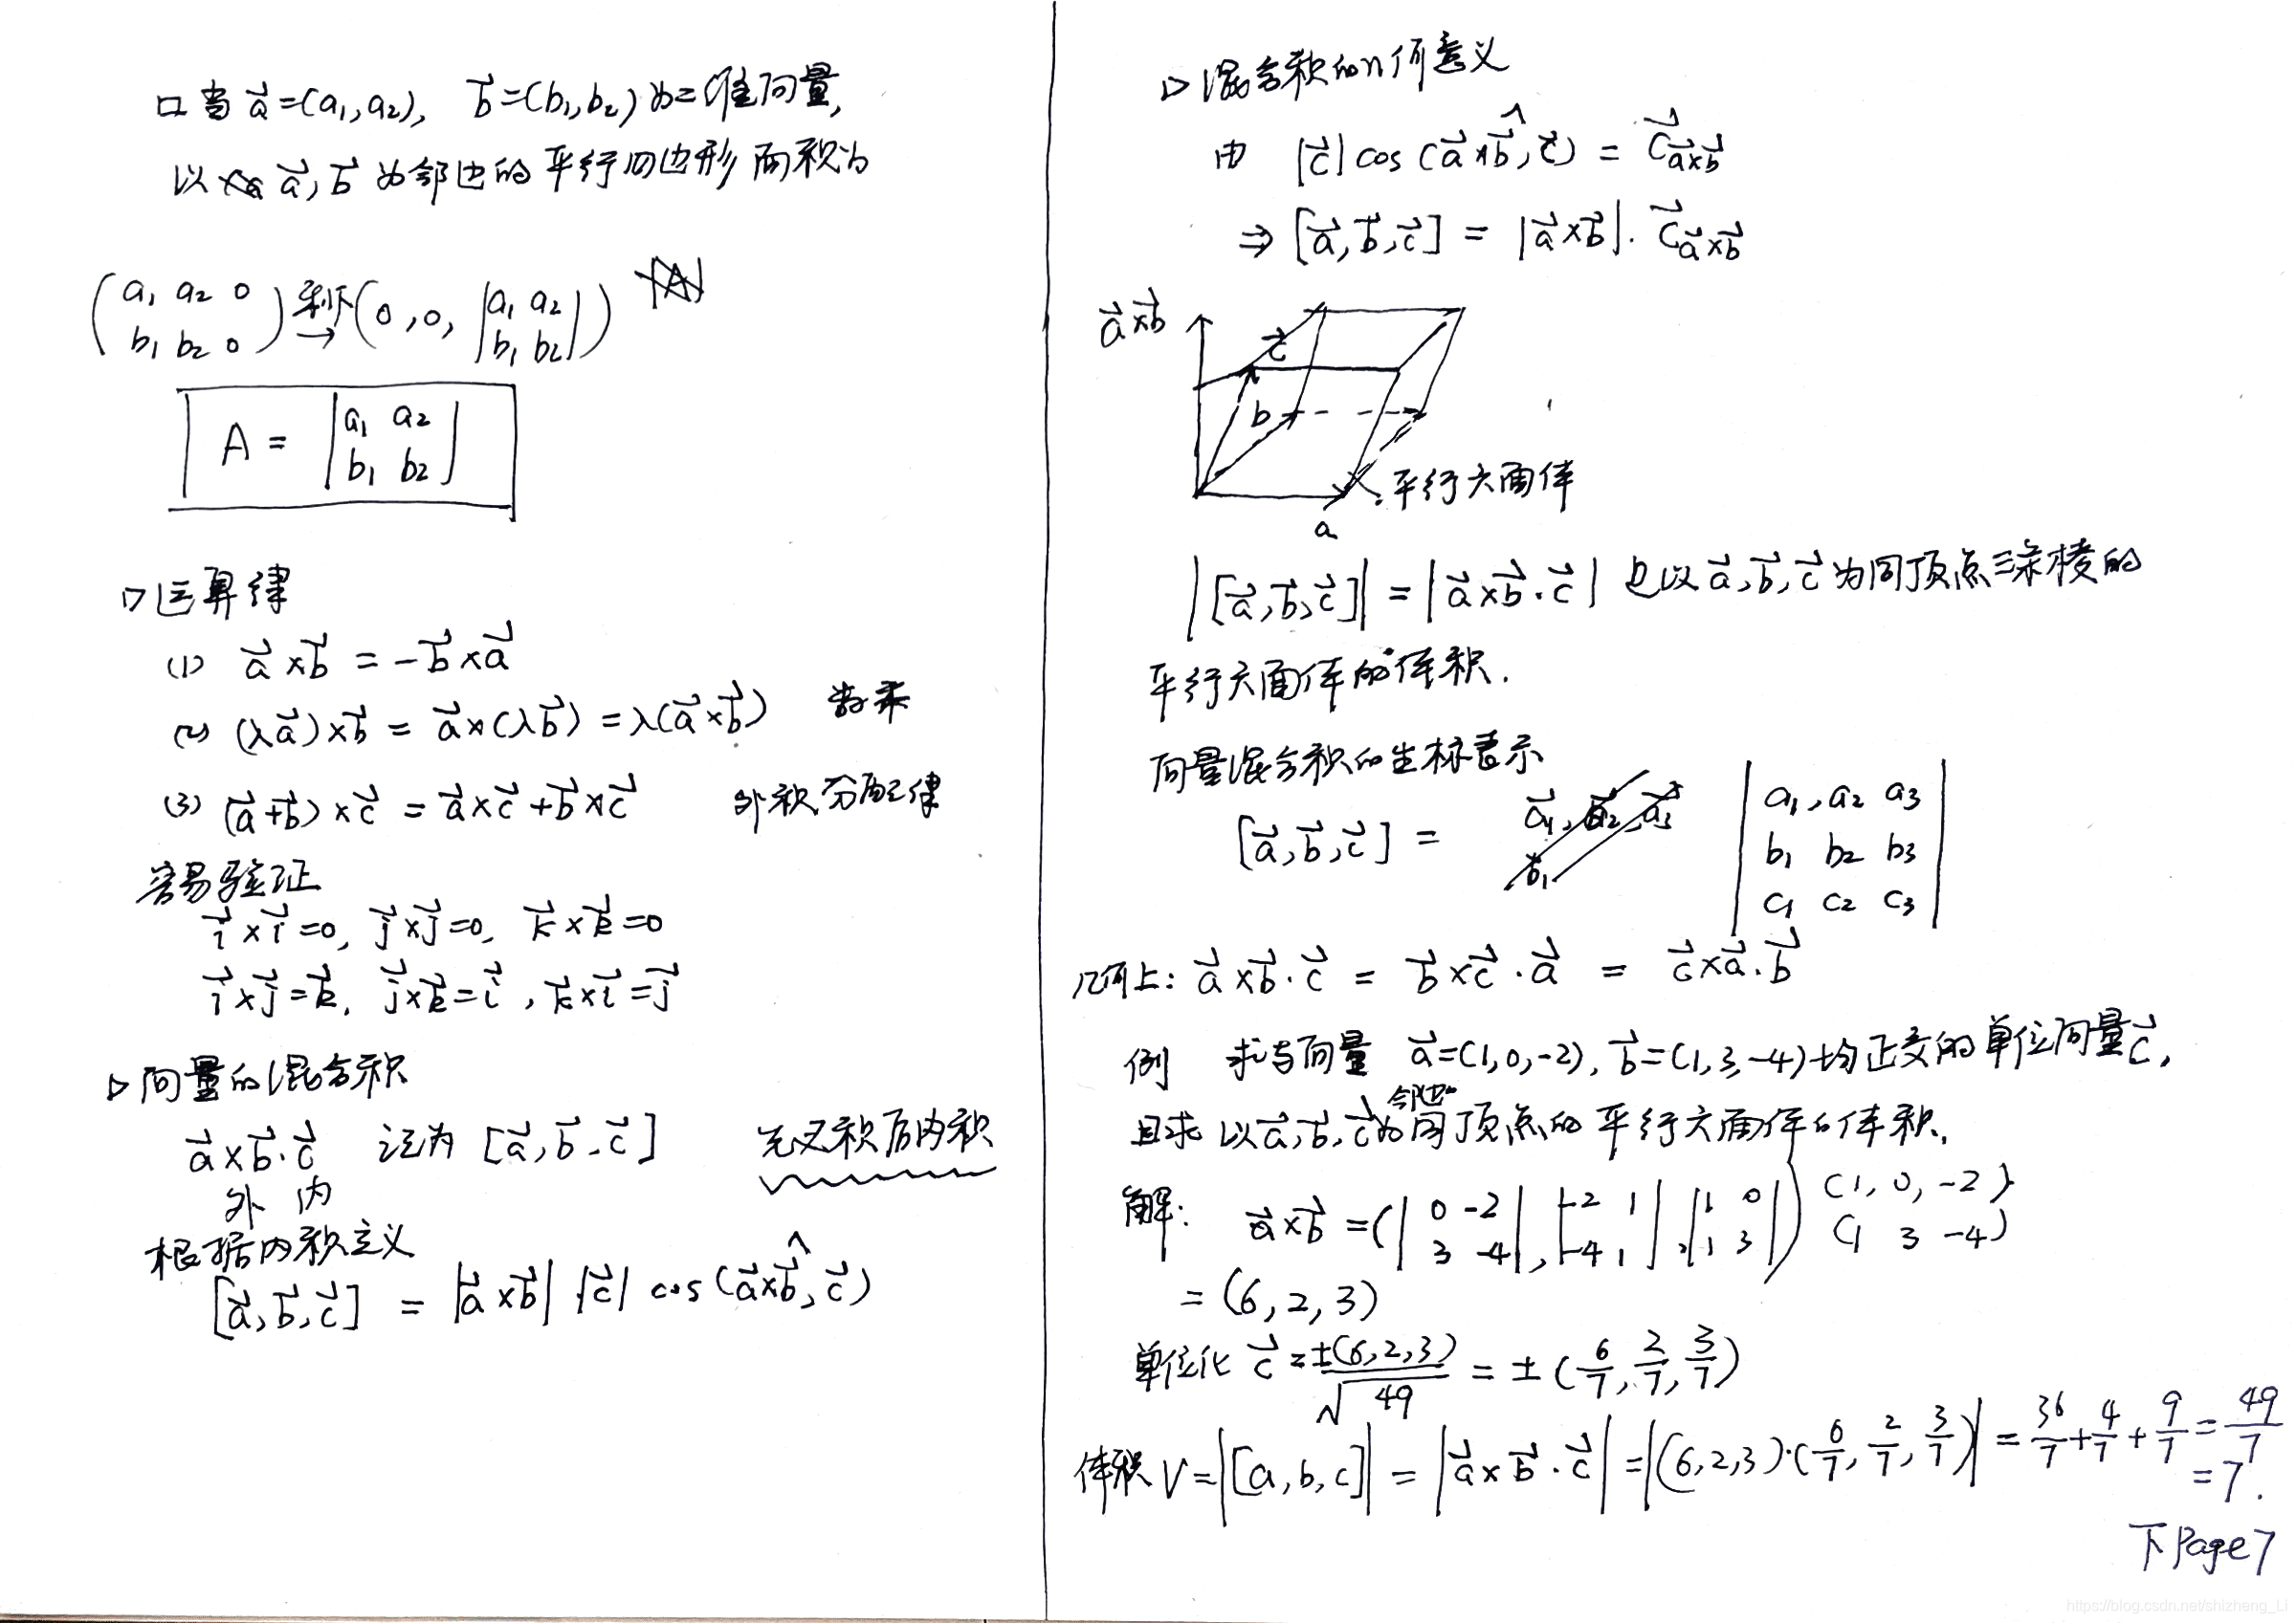 口当 a⃗=(a₁,a₂), b⃗=(b₁,b₂) 为二维向量,
以 a⃗, b⃗ 为邻边的平行四边形面积为
(a₁ a₂ 0
b₁ b₂ 0) 剩下→ (0,0, |a₁ a₂
b₁ b₂|)
A = |a₁ a₂
b₁ b₂|
▷运算律
(1) a⃗×b⃗ = -b⃗×a⃗
(2) (λa⃗)×b⃗ = a⃗×(λb⃗) = λ(a⃗×b⃗) 数乘
(3) (a⃗+b⃗)×c⃗ = a⃗×c⃗+b⃗×c⃗ 外积分配律
容易验证
i⃗×i⃗=0, j⃗×j⃗=0, k⃗×k⃗=0
i⃗×j⃗=k⃗, j⃗×k⃗=i⃗, k⃗×i⃗=j⃗
▷向量的混合积
a⃗×b⃗·c⃗ 记为 [a⃗,b⃗,c⃗] 先叉积后内积
外 内
根据内积定义
[a⃗,b⃗,c⃗] = |a⃗×b⃗| |c⃗| cos(a⃗×b⃗^,c⃗)
▷混合积的几何意义
由 |c⃗| cos(a⃗×b⃗^,c⃗) = c⃗ₐ⃗×b⃗
⇒ [a⃗,b⃗,c⃗] = |a⃗×b⃗|·c⃗ₐ⃗×b⃗
a⃗×b⃗
c⃗
b
平行六面体
a
|[a⃗,b⃗,c⃗]| = |a⃗×b⃗·c⃗| 以 a⃗,b⃗,c⃗ 为同顶点三条棱的
平行六面体的体积.
向量混合积的坐标表示
[a⃗,b⃗,c⃗] = |a₁, a₂ a₃
b₁ b₂ b₃
c₁ c₂ c₃|
几何上: a⃗×b⃗·c⃗ = b⃗×c⃗·a⃗ = c⃗×a⃗·b⃗
例 求与向量 a⃗=(1,0,-2), b⃗=(1,3,-4)均正交的单位向量c⃗,
邻边
且求 以a⃗,b⃗,c⃗为同顶点的平行六面体的体积.
解: a⃗×b⃗ =(|0 -2
3 -4|, |-2 1
-4 1|, |1 0
1 3|) (1, 0, -2)
(1 3 -4)
= (6, 2, 3)
单位化 c⃗ = ±(6,2,3)/√49 = ±(6/7, 2/7, 3/7)
体积 V=|[a,b,c]| = |a⃗×b⃗·c⃗| = |(6,2,3)·(6/7, 2/7, 3/7)| = 36/7+4/7+9/7 = 49/7
=7.
下Page7
https://blog.csdn.net/shizheng_Li